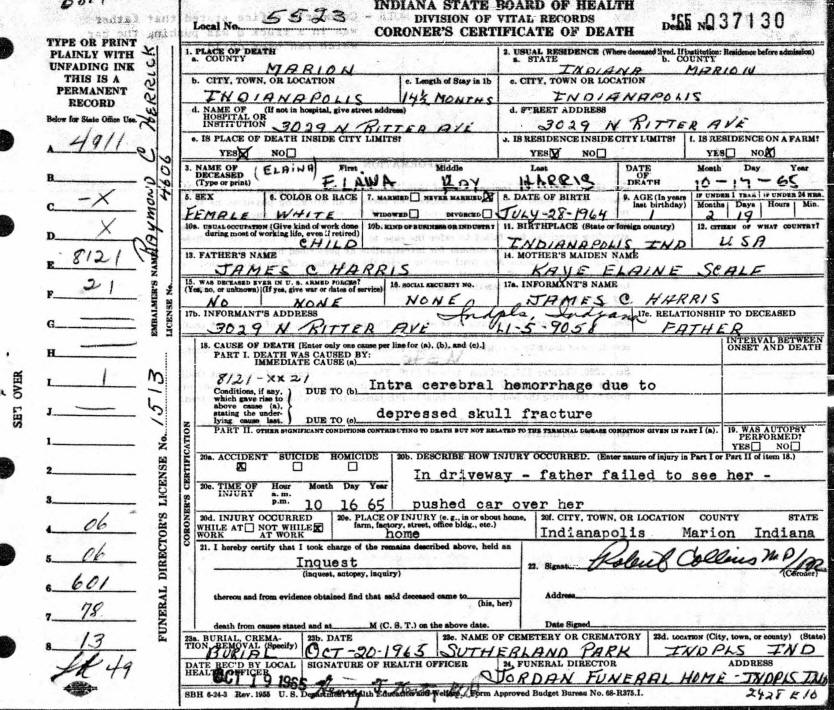 INDIANA STATE BOARD OF HEALTH
Local No. 5523 DIVISION OF VITAL RECORDS '65 037130
CORONER'S CERTIFICATE OF DEATH Death No.
TYPE OR PRINT
PLAINLY WITH
UNFADING INK
THIS IS A
PERMANENT
RECORD
Below for State Office Use.
A 4911
B
C -X
D X
E 8121
F 21
G
H
I 1
J
1
2
3
4 06
5 06
6 601
7 78
8 13
49
SET OVER
EMBALMER'S NAME RAYMOND C HERRICK
LICENSE No. 4606
FUNERAL DIRECTOR'S LICENSE No. 1513
CORONER'S CERTIFICATION
1. PLACE OF DEATH
a. COUNTY
MARION
2. USUAL RESIDENCE (Where deceased lived. If institution: Residence before admission)
a. STATE b. COUNTY
INDIANA MARION
b. CITY, TOWN, OR LOCATION c. Length of Stay in 1b
INDIANAPOLIS 14½ MONTHS
c. CITY, TOWN, OR LOCATION
INDIANAPOLIS
d. NAME OF (If not in hospital, give street address)
HOSPITAL OR
INSTITUTION 3029 N RITTER AVE
d. STREET ADDRESS
3029 N RITTER AVE
e. IS PLACE OF DEATH INSIDE CITY LIMITS?
YES☒ NO☐
e. IS RESIDENCE INSIDE CITY LIMITS? f. IS RESIDENCE ON A FARM?
YES☒ NO☐ YES☐ NO☒
3. NAME OF First Middle Last DATE Month Day Year
DECEASED (ELAINA) OF
(Type or print) RAY HARRIS DEATH 10-17-65
5. SEX 6. COLOR OR RACE 7. MARRIED☐ NEVER MARRIED☒ 8. DATE OF BIRTH 9. AGE (In years last birthday) IF UNDER 1 YEAR IF UNDER 24 HRS.
Months Days Hours Min.
FEMALE WHITE WIDOWED☐ DIVORCED☐ JULY-28-1964 1 2 19
10a. USUAL OCCUPATION (Give kind of work done during most of working life, even if retired) 10b. KIND OF BUSINESS OR INDUSTRY 11. BIRTHPLACE (State or foreign country) 12. CITIZEN OF WHAT COUNTRY?
CHILD INDIANAPOLIS IND USA
13. FATHER'S NAME 14. MOTHER'S MAIDEN NAME
JAMES C HARRIS KAYE ELAINE SCALF
15. WAS DECEASED EVER IN U. S. ARMED FORCES? 16. SOCIAL SECURITY NO. 17a. INFORMANT'S NAME
(Yes, no, or unknown) (If yes, give war or dates of service)
NO NONE NONE JAMES C. HARRIS
17b. INFORMANT'S ADDRESS Indpls, Indiana 17c. RELATIONSHIP TO DECEASED
3029 N RITTER AVE LI-5-9058 FATHER
18. CAUSE OF DEATH [Enter only one cause per line for (a), (b), and (c).] INTERVAL BETWEEN
PART I. DEATH WAS CAUSED BY: ONSET AND DEATH
IMMEDIATE CAUSE (a)
8121-XX21
Conditions, if any, which gave rise to above cause (a), stating the underlying cause last.
DUE TO (b) Intra cerebral hemorrhage due to
DUE TO (c) depressed skull fracture
PART II. OTHER SIGNIFICANT CONDITIONS CONTRIBUTING TO DEATH BUT NOT RELATED TO THE TERMINAL DISEASE CONDITION GIVEN IN PART I (a). 19. WAS AUTOPSY
PERFORMED?
YES☐ NO☐
20a. ACCIDENT SUICIDE HOMICIDE 20b. DESCRIBE HOW INJURY OCCURRED. (Enter nature of injury in Part I or Part II of item 18.)
☒ ☐ ☐ In driveway - father failed to see her -
20c. TIME OF Hour Month Day Year
INJURY a. m.
p.m. 10 16 65 pushed car over her
20d. INJURY OCCURRED 20e. PLACE OF INJURY (e. g., in or about home, farm, factory, street, office bldg., etc.) 20f. CITY, TOWN, OR LOCATION COUNTY STATE
WHILE AT☐ NOT WHILE☒
WORK AT WORK home Indianapolis Marion Indiana
21. I hereby certify that I took charge of the remains described above, held an
Inquest
(inquest, autopsy, inquiry)
thereon and from evidence obtained find that said deceased came to
(his, her)
death from causes stated and at M (C. S. T.) on the above date.
22. Signature Robert Collins MD
(Coroner)
Address
Date Signed
23a. BURIAL, CREMATION, REMOVAL (Specify) 23b. DATE 23c. NAME OF CEMETERY OR CREMATORY 23d. LOCATION (City, town, or county) (State)
BURIAL OCT-20-1965 SUTHERLAND PARK INDPLS IND
DATE REC'D BY LOCAL HEALTH OFFICER SIGNATURE OF HEALTH OFFICER 24. FUNERAL DIRECTOR ADDRESS
OCT 19 1965 JORDAN FUNERAL HOME - INDPLS IND
SBH 6-24-3 Rev. 1955 U. S. Department Health Education and Welfare Form Approved Budget Bureau No. 68-R375.1. 2428 E 10